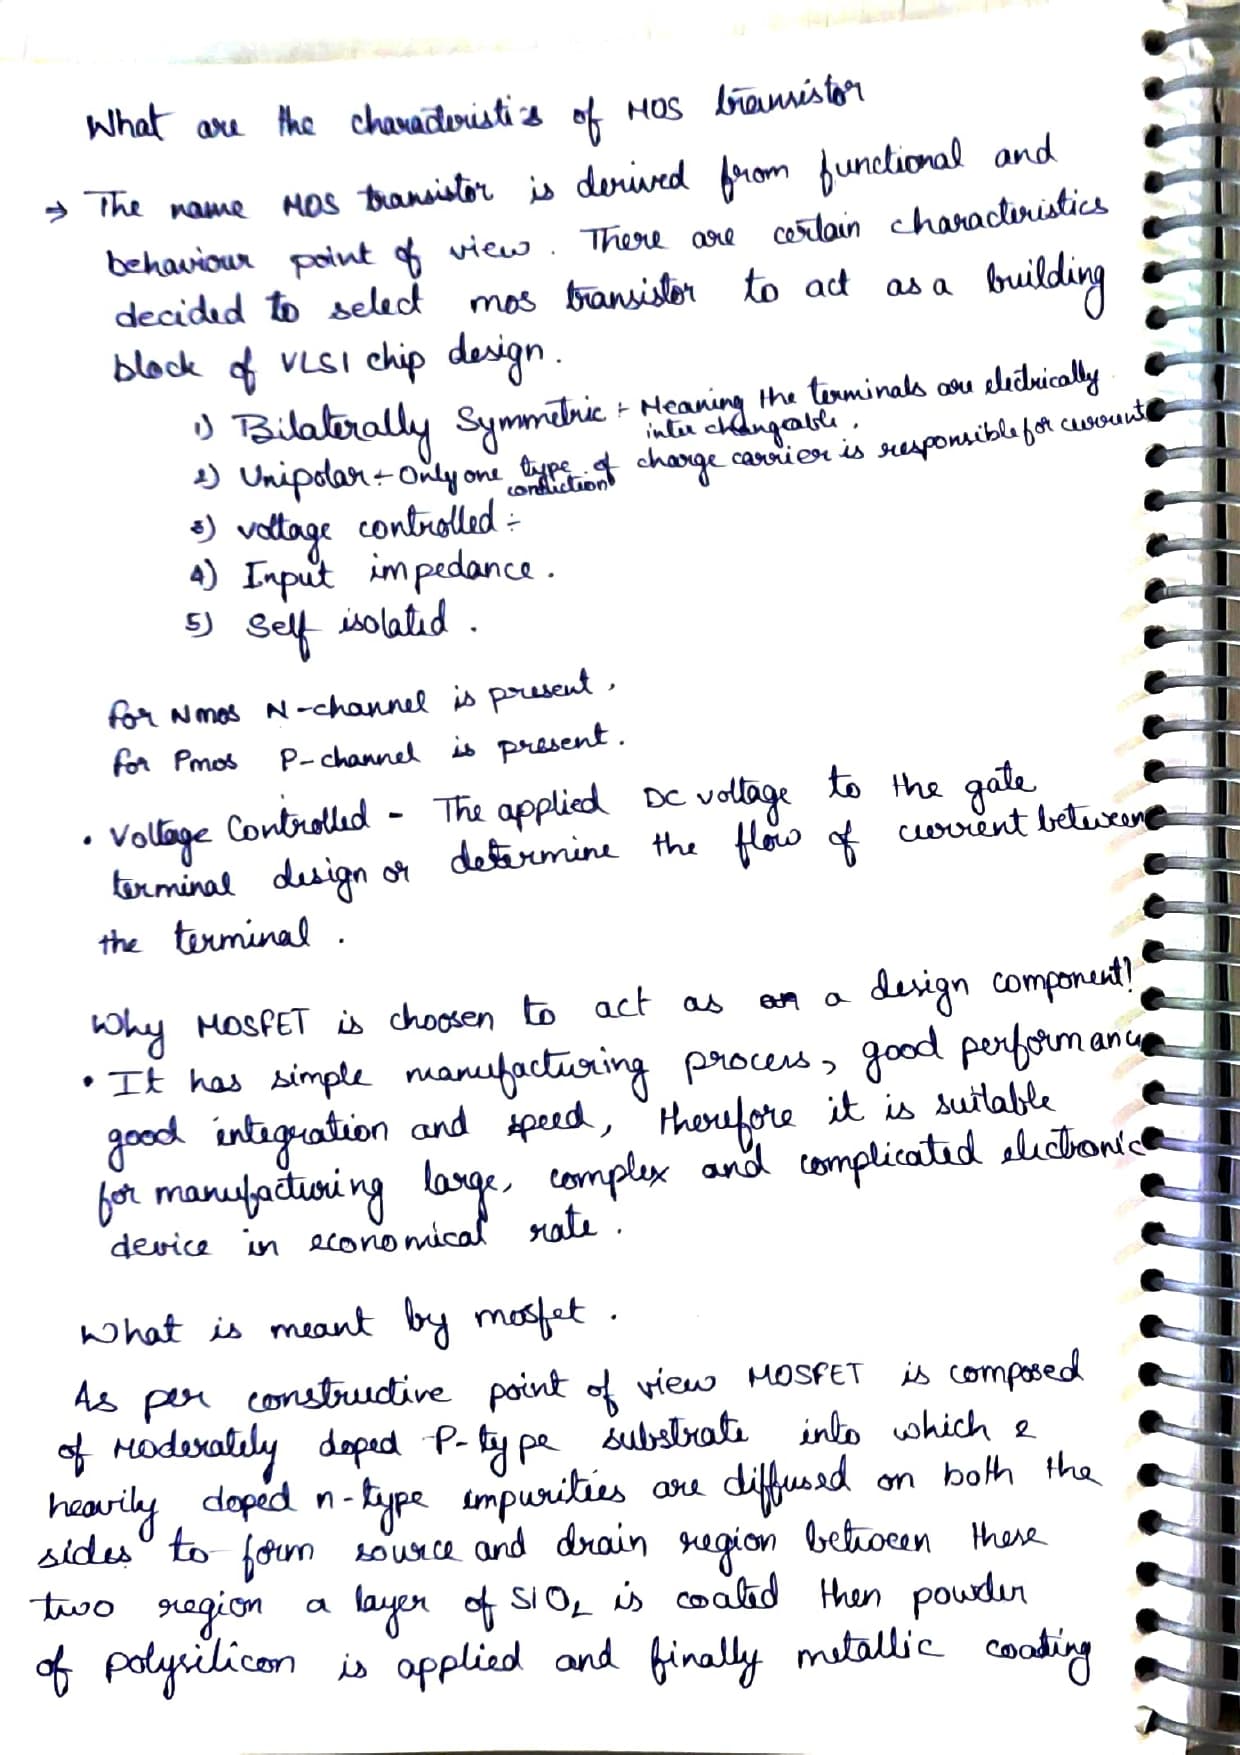 What are the characteristics of MOS transistor
→ The name MOS transistor is derived from functional and
behaviour point of view. There are certain characteristics
decided to select mos transistor to act as a building
block of VLSI chip design.
1) Bilaterally Symmetric :- Meaning the terminals are electrically
inter changeable.
2) Unipolar :- Only one type of charge carrier is responsible for current
conduction
3) voltage controlled :-
4) Input impedance.
5) Self isolated.
for Nmos N-channel is present.
for Pmos P-channel is present.
• Voltage Controlled - The applied DC voltage to the gate
terminal design or determine the flow of current between
the terminal.
Why MOSFET is choosen to act as a design component?
• It has simple manufacturing process, good performance
good integration and speed, therefore it is suitable
for manufacturing large, complex and complicated electronic
device in economical rate.
What is meant by mosfet.
As per constructive point of view MOSFET is composed
of Moderately doped P-type substrate into which 2
heavily doped n-type impurities are diffused on both the
sides to form source and drain region between these
two region a layer of SiO2 is coated then powder
of polysilicon is applied and finally metallic coating